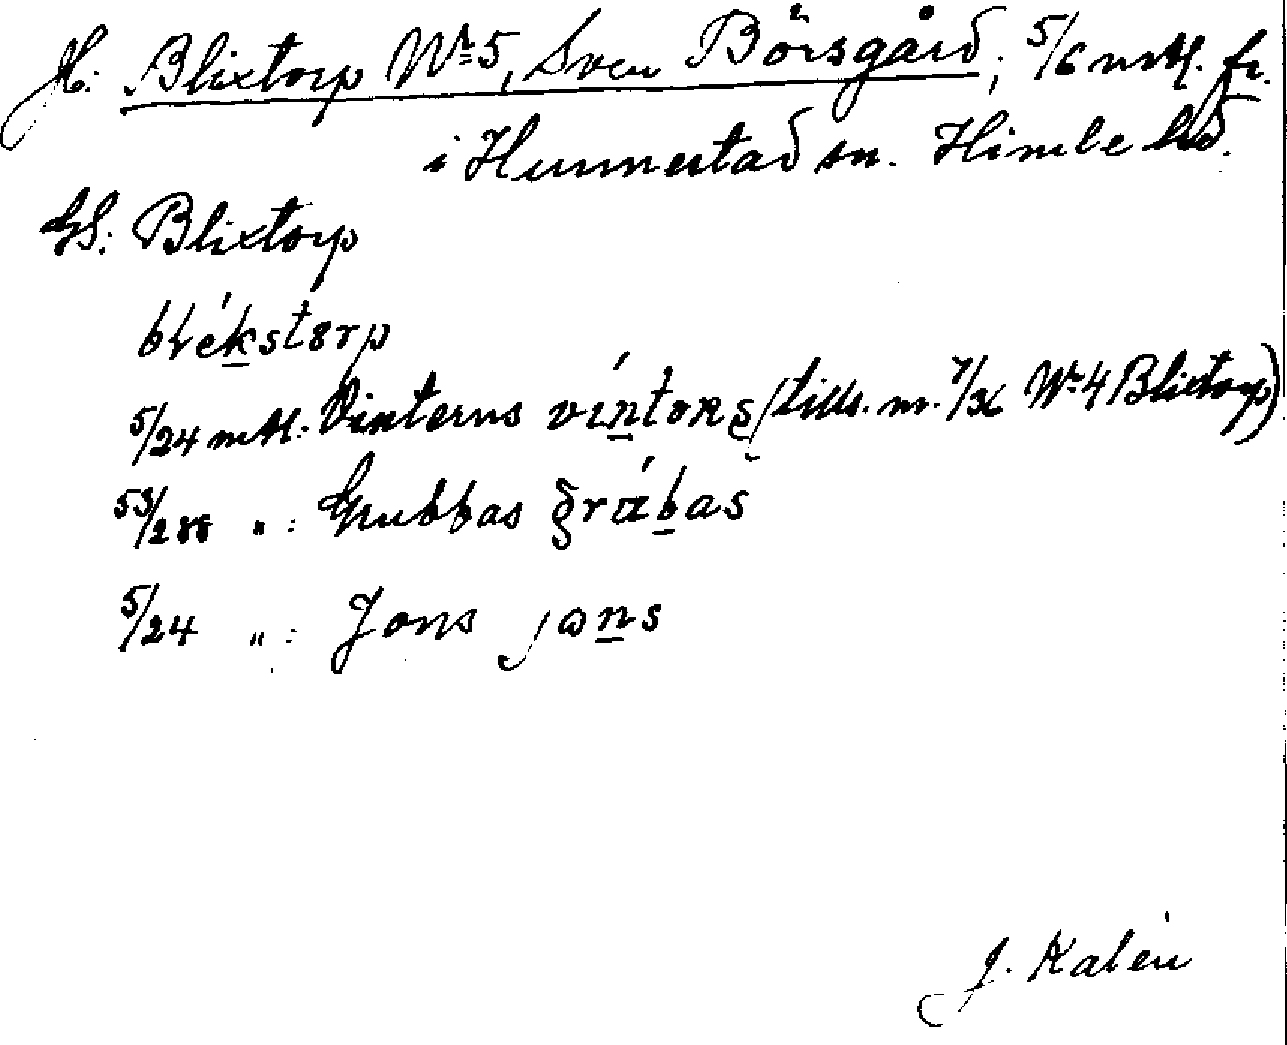 H: Blixtorp No 5, Sven Börsgård; 5/6 mtl. fr.
i Hunnestad sn. Himle hd.
GS: Blixtorp
blékstorp
5/24 mtl: Vinterns víntons (tills. m. 7/36 No 4 Blixtorp)
53/288 „ : Grubbas grábas
5/24 „ : Jons jons
J. Kalén